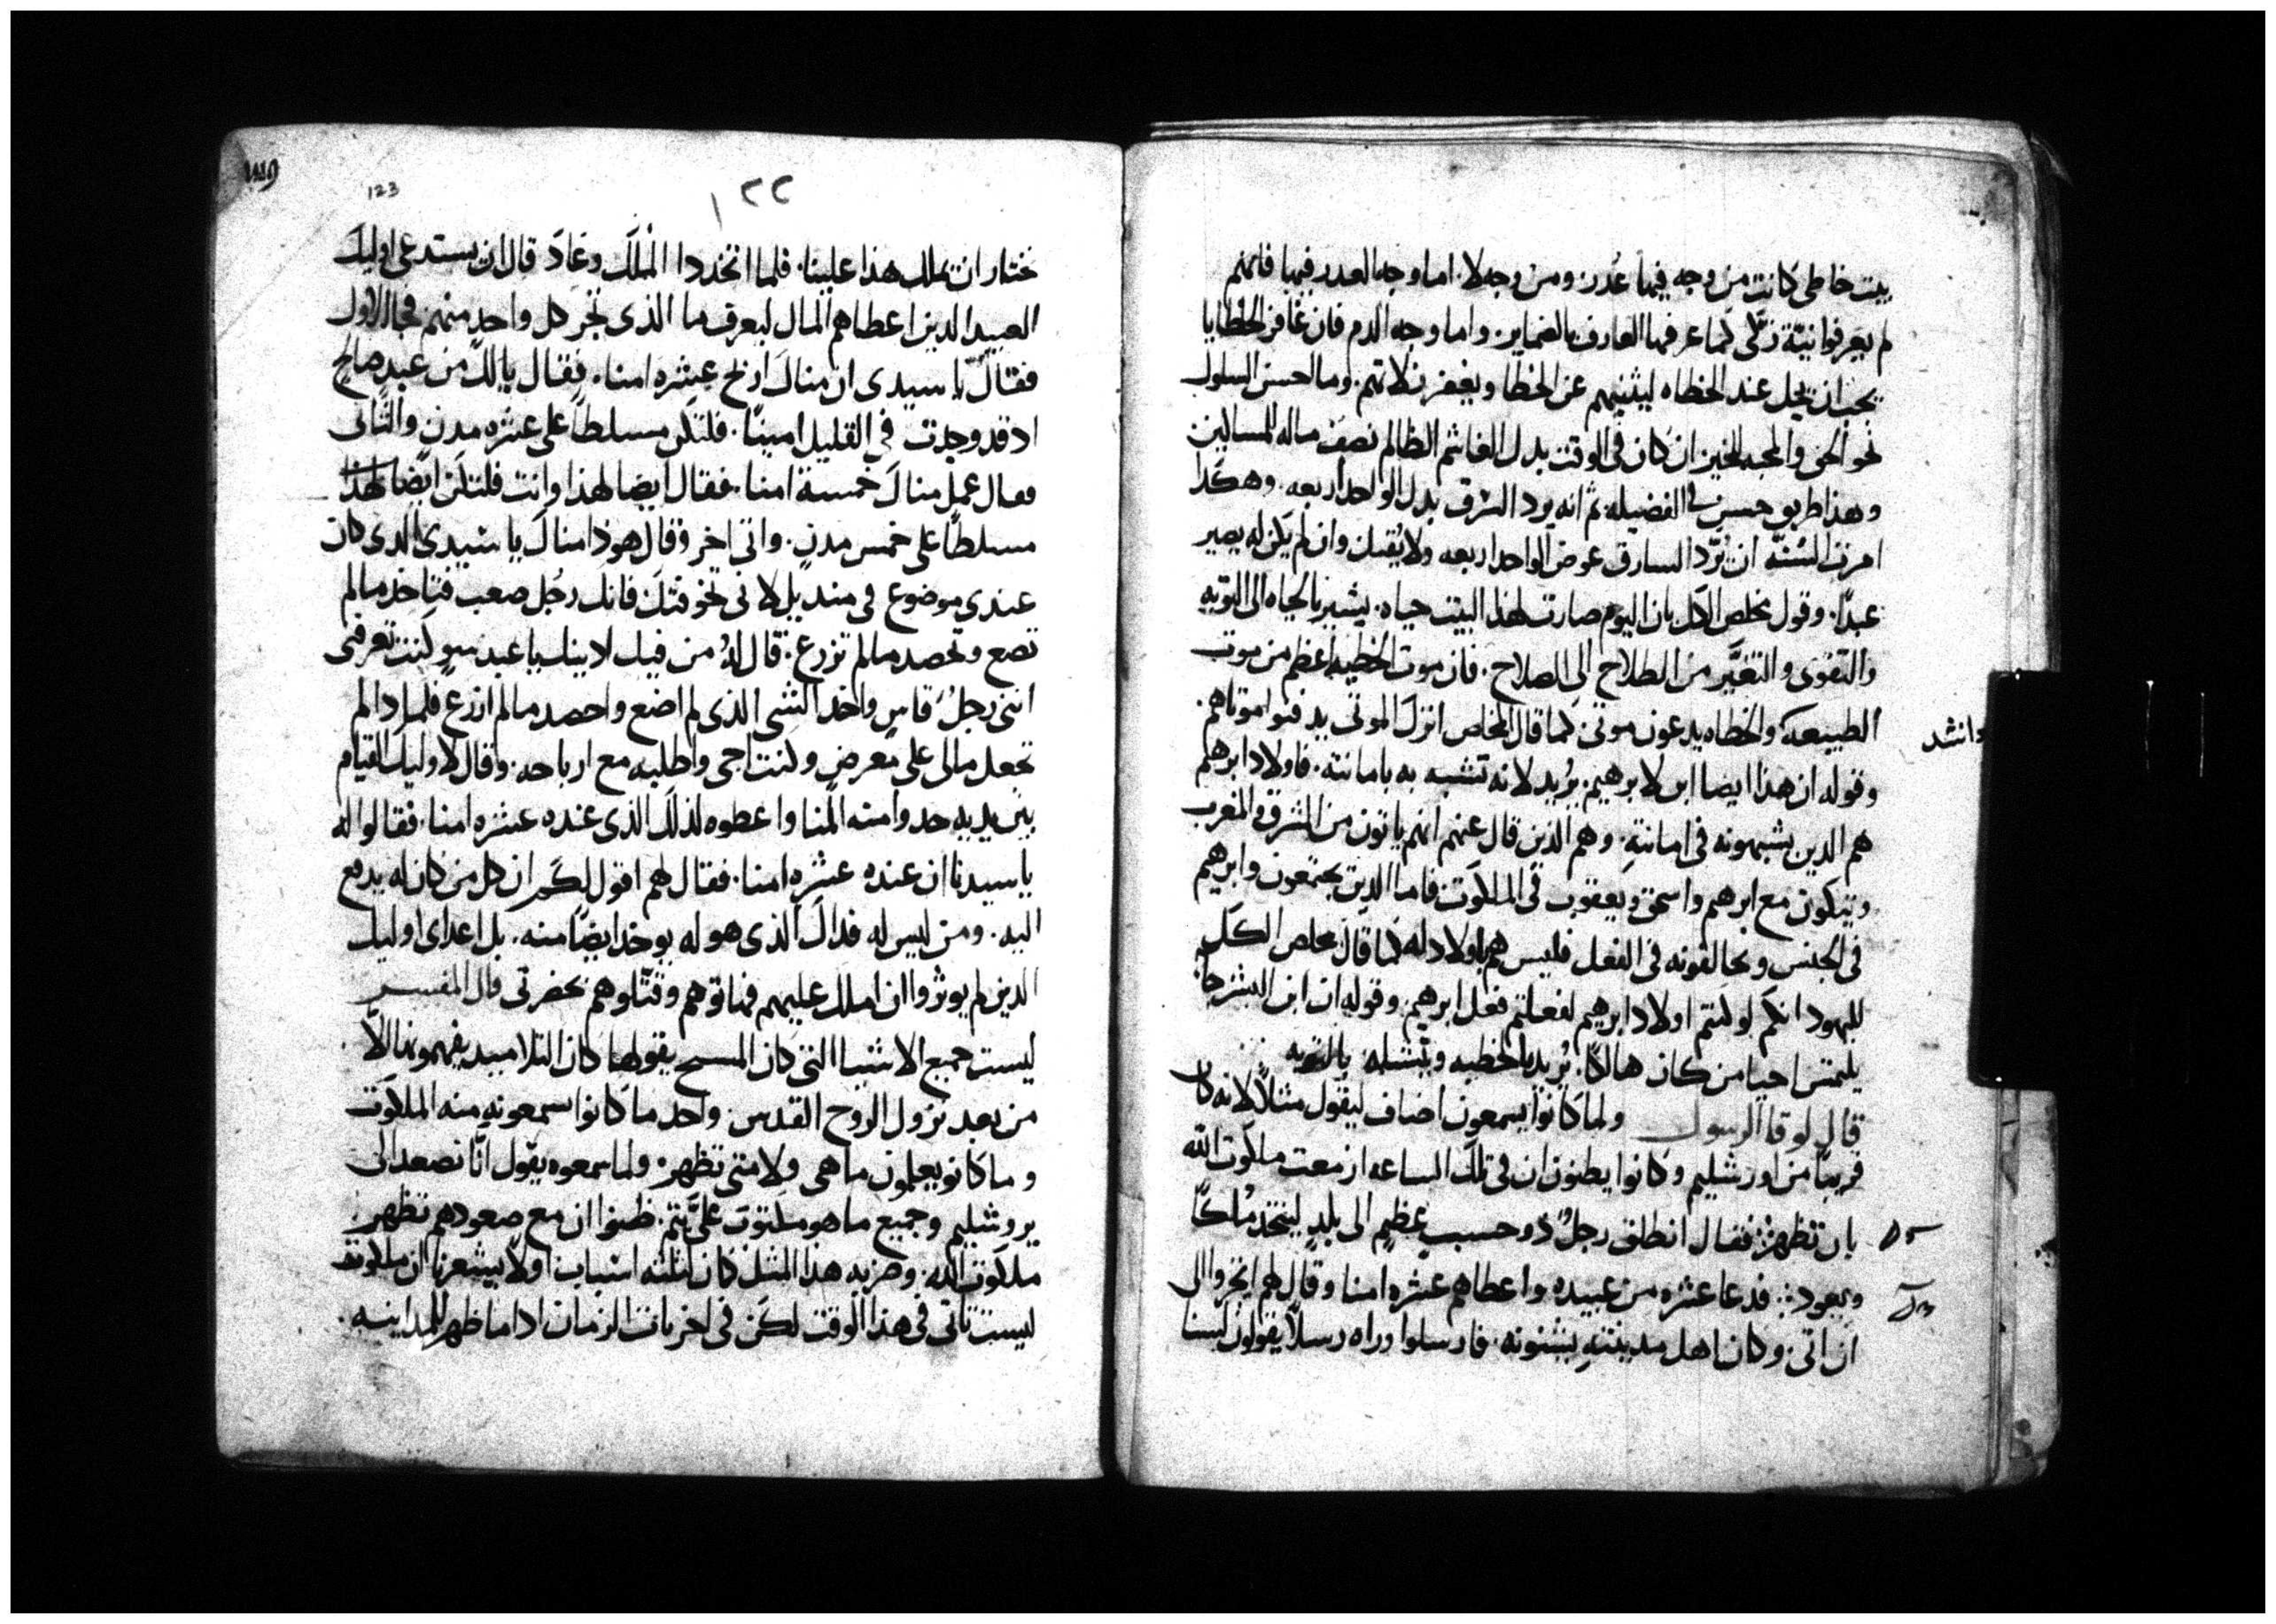 بيت خاطى كانت من وجه فيها عُدر ومن وجه لا. اما وجه العدر فيها فانهم
لم يعرفوا نيّة زكّى كما عرفها العارف بالضماير. واما وجه الدم فان غافر الخطايا
يجب ان يحل عند الخطاه ليثنيهم عن الخطا ويغفر زلاتهم. وما احسن السلوك
نحو الحق والمحبه للخير ان كان فى الوقت بدل الغاشم الظالم نصف ماله للمساكين
وهذا طريق حسن فى الفضيله ثم انه يرد السرق بدل الواحد اربعه. وهكذا
امرت السُنّه ان يَرُد السارق عوض الواحد اربعه ولا يُقتل وان لم يكن له يصير
عبدًا. وقول مخلص الكل بان اليوم صارت لهذا البيت حياه. يشير بالحياه الى التوبه
والتقوى والتغيَّر من الطلاح الى الصلاح. فان موت الخطيه اعظم من موت
الطبيعه والخطاه يدعون موتى كما قال المخلص اترك الموتى يدفنوا موتاهم.
وانشد
وقوله ان هذا ايضا ابن لابرهيم. يُريد لانه تشبه به بامانته. فاولاد ابرهيم
هم الدين يشبهونه فى امانتهِ. وهم الذين قال عنهم انهم ياتون من المشرق والمغرب
ويتكون مع ابرهيم واسحق ويعقوب فى الملكوت فاما الدين يجتمعون وابرهيم
فى الجنس ويخالفونه فى الفعل فليس هم باولاد له كما قال مخلص الكل
لليهود انكم لو كنتم اولاد ابرهيم لفعلتم فعل ابرهيم. وقوله ان ابن البشر جا
يلتمس احيا من كان هالكا. يُريد بالخطيه وينتشله بالتوبه
قال لوقا الرسول ولما كانوا يسمعون اضاف ليقول مثالًا لانه كان
قريبًا من اورشليم وكانوا يظنون ان فى تلك الساعه ازمعت ملكوت الله
بان تظهر فقال انطلق رجلٌ دو حسبٍ عظيم الى بلدٍ ليتخد مُلكًا
ويعود. فدعا عشره من عبيده واعطاهم عشره امنا وقال لهم اتجروا الى
ان اتى. وكان اهل مدينتهِ يشنونه. فارسلوا وراه رسلًا يقولون لسنا
١٢٢
123
نختار ان يملك هذا علينا. فلما اتخد دا المُلكَ وعَادَ قال ان يستدعى اوليك
العبيد الدين اعطاهم المال ليعرف ما الذى تجر كل واحدٍ منهم فجا الاول
فقال يا سيدى ان مناك اربح عشره امنا. فقال يا لك من عبدٍ صالحٍ
اد قد وجدت فى القليل امينًا. فلتكن مسلطًا على عشره مدنٍ والثانى
فقال عمل مناكَ خمسة امنا. فقال ايضا لهذا وانت فلتكن ايضا
مسلطًا على خمس مدنٍ. واتى اخر وقال هودا مناكَ يا سيدى الدى كان
عندى موضوع فى منديل لانى تخوفتك فانك رجُل صعب فتاخد مالم
تضع وتحصد مالم تزرع. قال لهُ من فيك ادينك يا عبد سو كنت تعرفنى
اننى رجلٌ قاسٍ واخد الشى الذى لم اضع واحصد مالم ازرع فلمادا لم
تجعل مالى على معرضٍ وكنت اجى واطلبه مع ارباحه. وقال لاوليك القيام
بين يديه خدوا منه المنا واعطوه لذلك الذى عنده عشره امنا. فقالوا له
يا سيدنا ان عنده عشره امنا. فقال لهم اقول لكم ان كل من كان له يدفع
اليه. ومن ليس له فداكَ الذى هو له يوخد ايضًا منه. بل اعداى اوليك
الدين لم يوثروا ان املك عليهم فهاتوهم وقتّلوهم بحضرتى قال المفسر
ليست جميع الاشيا التى كان المسيح يقولها كان التلاميد يفهمونها الَّا
من بعد نزول الروح القدس. واحد ما كانوا سمعونه منه الملكوت
وما كانو يعلمون ما هى ولا متى تظهر. ولما سمعوه يقول انّا نصعد الى
يروشليم وجميع ما هو مكتوبَ علىَّ يتم. ظنوا ان مع صعودهم تظهر
ملكوت الله. وضربه هذا المثل كان لثلثه اسباب. اولًا يشعرنا ان ملكوته
ليست تاتى فى هذا الوقت لكن فى اخريات الزمان ادا ما ظهر للمداينه.